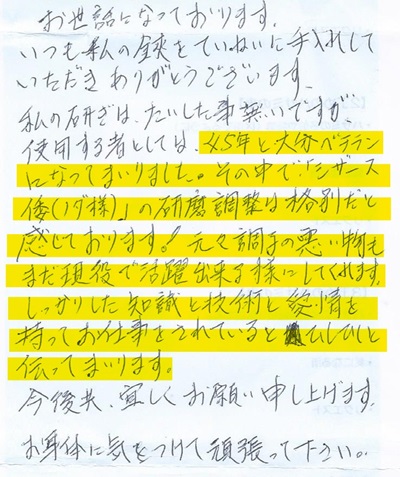 お世話になっております。
いつも私の鋏をていねいに手入れして
いただきありがとうございます。
私の研ぎは、たいした事無いですが、
使用する者としては、45年と大分ベテラン
になってまいりました。その中で「シザース
倭(ノダ様)」の研磨調整は格別だと
感じております！元々調子の悪い物も
まだ現役で活躍出来る様にしてくれます。
しっかりした知識と技術と愛情を
持ってお仕事をされていると ひしひしと
伝ってまいります。
今後共、宜しくお願い申し上げます。
お身体に気をつけて頑張って下さい。